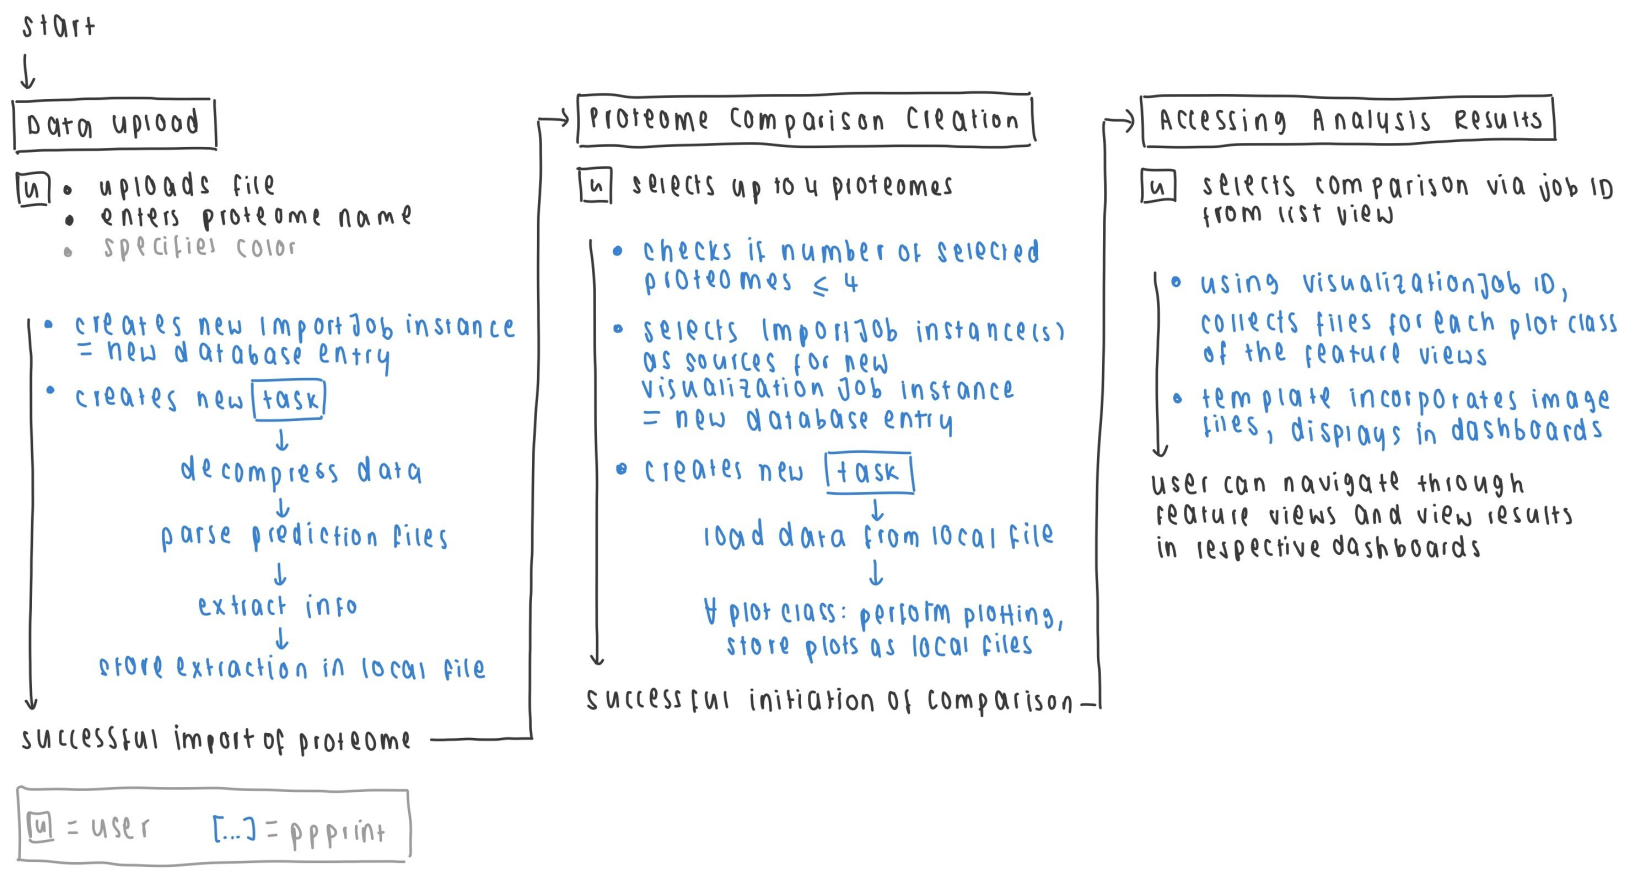 start
Data upload
u • uploads file
• enters proteome name
• specifies color
• creates new ImportJob instance
= new database entry
• creates new task
decompress data
parse prediction files
extract info
store extraction in local file
successful import of proteome
Proteome Comparison Creation
u selects up to 4 proteomes
• checks if number of selected
proteomes ≤ 4
• selects ImportJob instance(s)
as sources for new
visualization Job instance
= new database entry
• creates new task
load data from local file
∀ plot class: perform plotting,
store plots as local files
successful initiation of comparison
Accessing Analysis Results
u selects comparison via job ID
from list view
• using visualizationJob ID,
collects files for each plot class
of the feature views
• template incorporates image
files, displays in dashboards
user can navigate through
feature views and view results
in respective dashboards
u = user [...] = ppprint